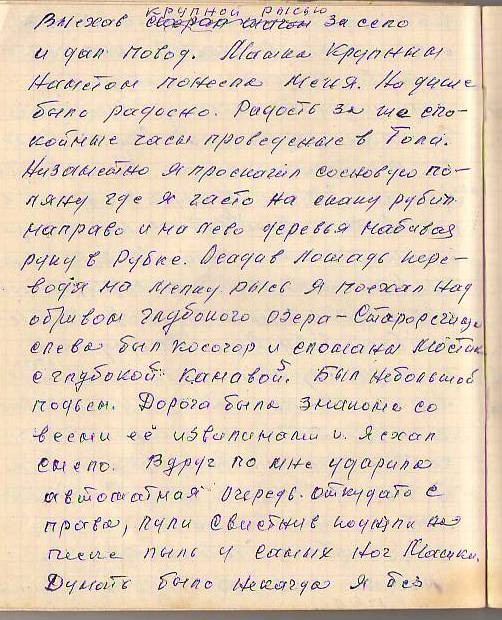 крупной рысью
Выехав за село
и дал повод. Машка крупным
наметом понесла меня. На душе
было радосно. Радость за те спо-
койные часы проведеные в Голи.
Низаметно я проскачил сосновую по-
ляну где я часто на скаку рубил
направо и налево деревья набивая
руку в рубке. Осадив лошадь пере-
водя на мелку рысь я поехал над
обрывом глубокого озера-Старорегица
слева был косогор и сломаны мостик
с глубокой канавой. Был небольшой
подьем. Дорога была знакома со
всеми её извилинами и я ехал
смело. Вдруг по мне ударила
автоматная очередь. откудато с
права, пули свистнив
песке пыль у самых ног Машки.
Думать было некагда я без